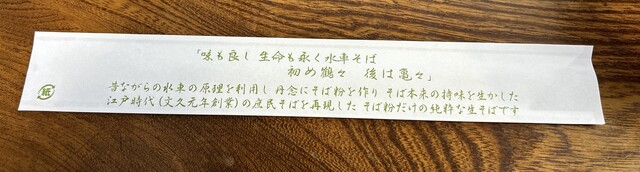 「味も良し 生命も永く水車そば
初め鶴々 後は亀々」
昔ながらの水車の原理を利用し 丹念にそば粉を作り そば本来の持味を生かした
江戸時代(文久元年創業)の庶民そばを再現した そば粉だけの純粋な生そばです
紙